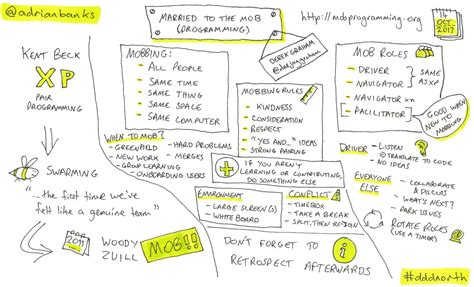 @adrianbanks
MARRIED TO THE MOB
(PROGRAMMING)
http://mobprogramming.org
14
OCT
2017
KENT BECK
XP
PAIR
PROGRAMMING
SWARMING
"...the first time we've
felt like a genuine team"
2011
WOODY
ZUILL
MOB!!
MOBBING:
ALL PEOPLE
SAME TIME
SAME THING
SAME SPACE
SAME COMPUTER
DEREK GRAHAM
@deejaygraham
WHEN TO MOB?
- GREENFIELD
- HARD PROBLEMS
- NEW WORK
- MERGES
- GROUP LEARNING
- ONBOARDING USERS
MOBBING RULES
- KINDNESS
- CONSIDERATION
- RESPECT
- "YES AND..." IDEAS
- STRONG PAIRING
IF YOU AREN'T
LEARNING OR CONTRIBUTING,
DO SOMETHING ELSE
ENVIRONMENT
- LARGE SCREEN(S)
- WHITE BOARD
CONFLICT
- TIMEBOX
- TAKE A BREAK
- SPLIT, THEN REJOIN
DON'T FORGET TO
RETROSPECT AFTERWARDS
i
MOB ROLES
- DRIVER
- NAVIGATOR
SAME
AS XP
- NAVIGATOR
- FACILITATOR
GOOD WHEN
NEW TO
MOBBING
DRIVER
- LISTEN
- TRANSLATE TO CODE
- NO IDEAS
EVERYONE
ELSE
- COLLABORATE
& DISCUSS
- WHAT'S NEXT?
- PARK ISSUES
ROTATE ROLES
(USE A TIMER)
#dddnorth